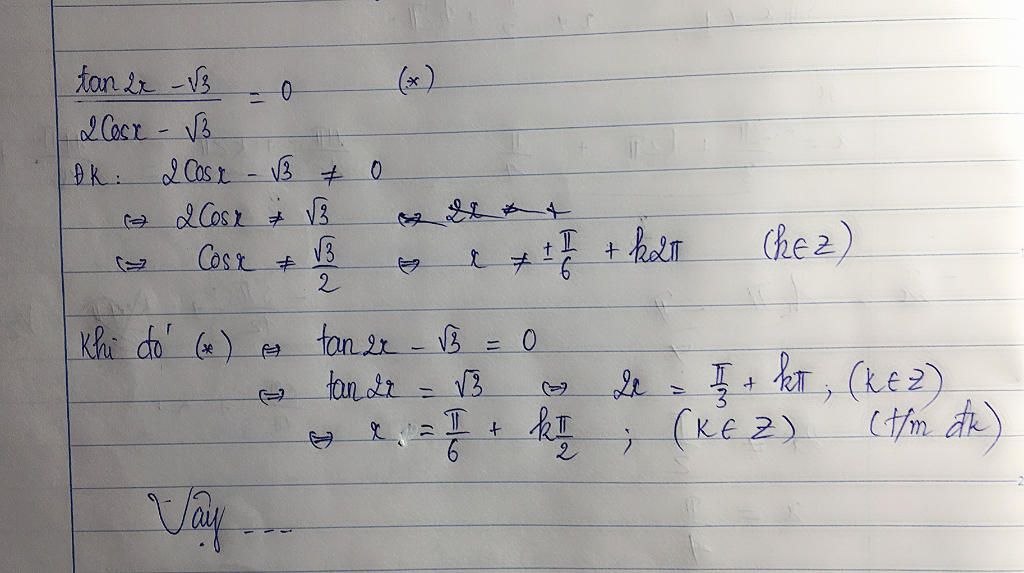 tan 2x - √3 / 2Cosx - √3 = 0 (*)
ĐK: 2Cosx - √3 ≠ 0
⇔ 2Cosx ≠ √3
⇔ Cosx ≠ √3/2 ⇔ x ≠ ± π/6 + k2π (k∈Z)
Khi đó (*) ⇔ tan 2x - √3 = 0
⇔ tan 2x = √3 ⇔ 2x = π/3 + kπ, (k∈Z)
⇔ x = π/6 + kπ/2 ; (k∈Z) (t/m đk)
Vậy ----